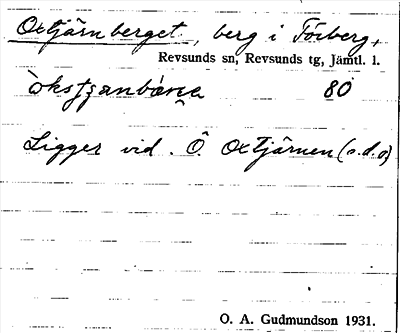 Oxtjärnberget, berg i Förberg,
Revsunds sn, Revsunds tg, Jämtl. l.
80
Ligger vid Ö. Oxtjärnen (s.d.o)
O. A. Gudmundson 1931.